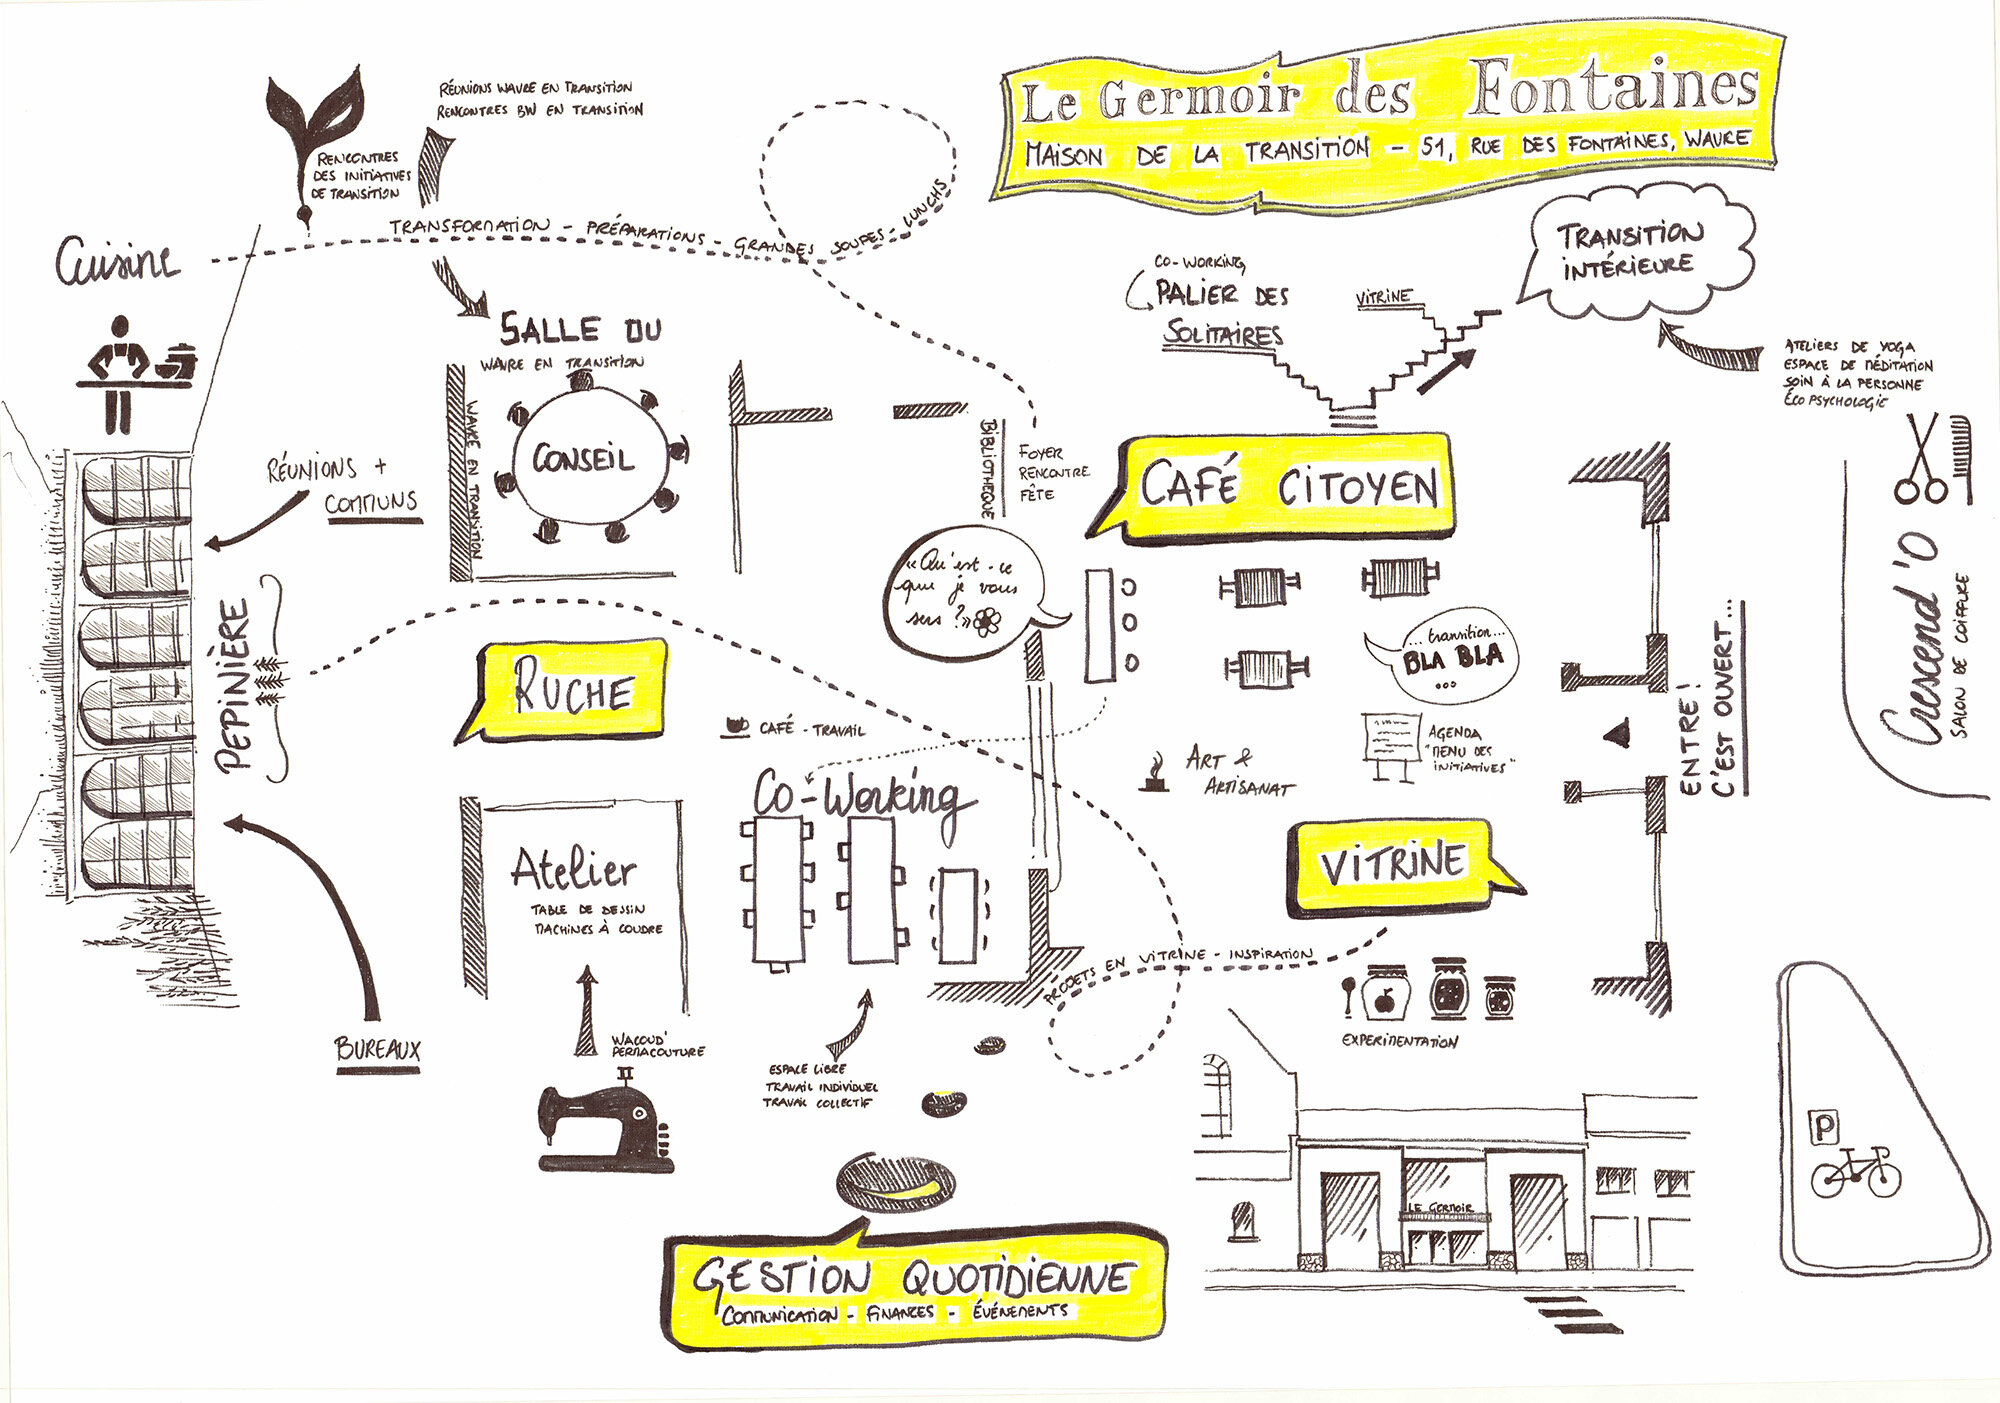 Le Germoir des Fontaines
MAISON DE LA TRANSITION - 51, RUE DES FONTAINES, WAVRE
RÉUNIONS WAVRE EN TRANSITION
RENCONTRES BW EN TRANSITION
RENCONTRES
DES INITIATIVES
DE TRANSITION
TRANSFORMATION - PRÉPARATIONS - GRANDES SOUPES - LUNCHS
Cuisine
SALLE DU
WAVRE EN TRANSITION
WAVRE EN TRANSITION
CONSEIL
CO-WORKING
PALIER DES
SOLITAIRES
VITRINE
TRANSITION
INTÉRIEURE
ATELIERS DE YOGA
ESPACE DE MÉDITATION
SOIN À LA PERSONNE
ÉCO PSYCHOLOGIE
RÉUNIONS +
COMMUNS
BIBLIOTHEQUE
FOYER
RENCONTRE
FÊTE
CAFÉ CITOYEN
«Qu'est-ce
que je vous
sers ?»
... transition...
BLA BLA
...
PEPINIÈRE
RUCHE
CAFÉ - TRAVAIL
AGENDA
"MENU DES
INITIATIVES"
ART &
ARTISANAT
ENTRE!
C'EST OUVERT...
Crescend'O
SALON DE COIFFURE
Co-Working
Atelier
TABLE DE DESSIN
MACHINES À COUDRE
VITRINE
PROJETS EN VITRINE - INSPIRATION
EXPERIMENTATION
BUREAUX
WACOUD'
PERMACOUTURE
ESPACE LIBRE
TRAVAIL INDIVIDUEL
TRAVAIL COLLECTIF
P
LE GERMOIR
GESTION QUOTIDIENNE
COMMUNICATION - FINANCES - ÉVÉNEMENTS